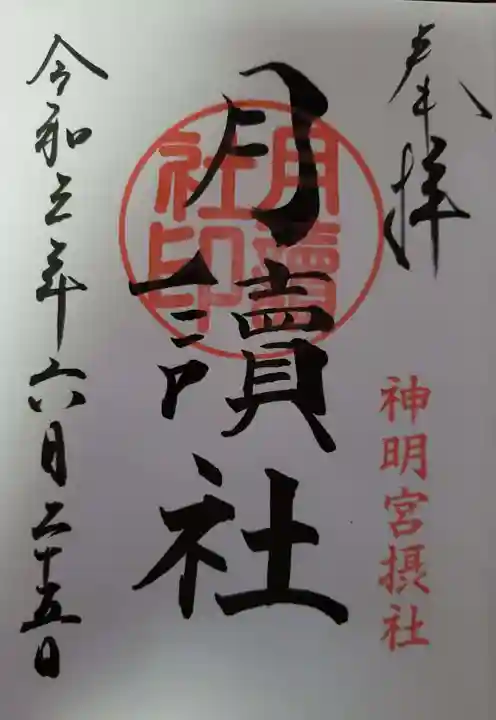 奉拝
神明宮摂社
月讀社
月讀社印
令和三年六月二十五日